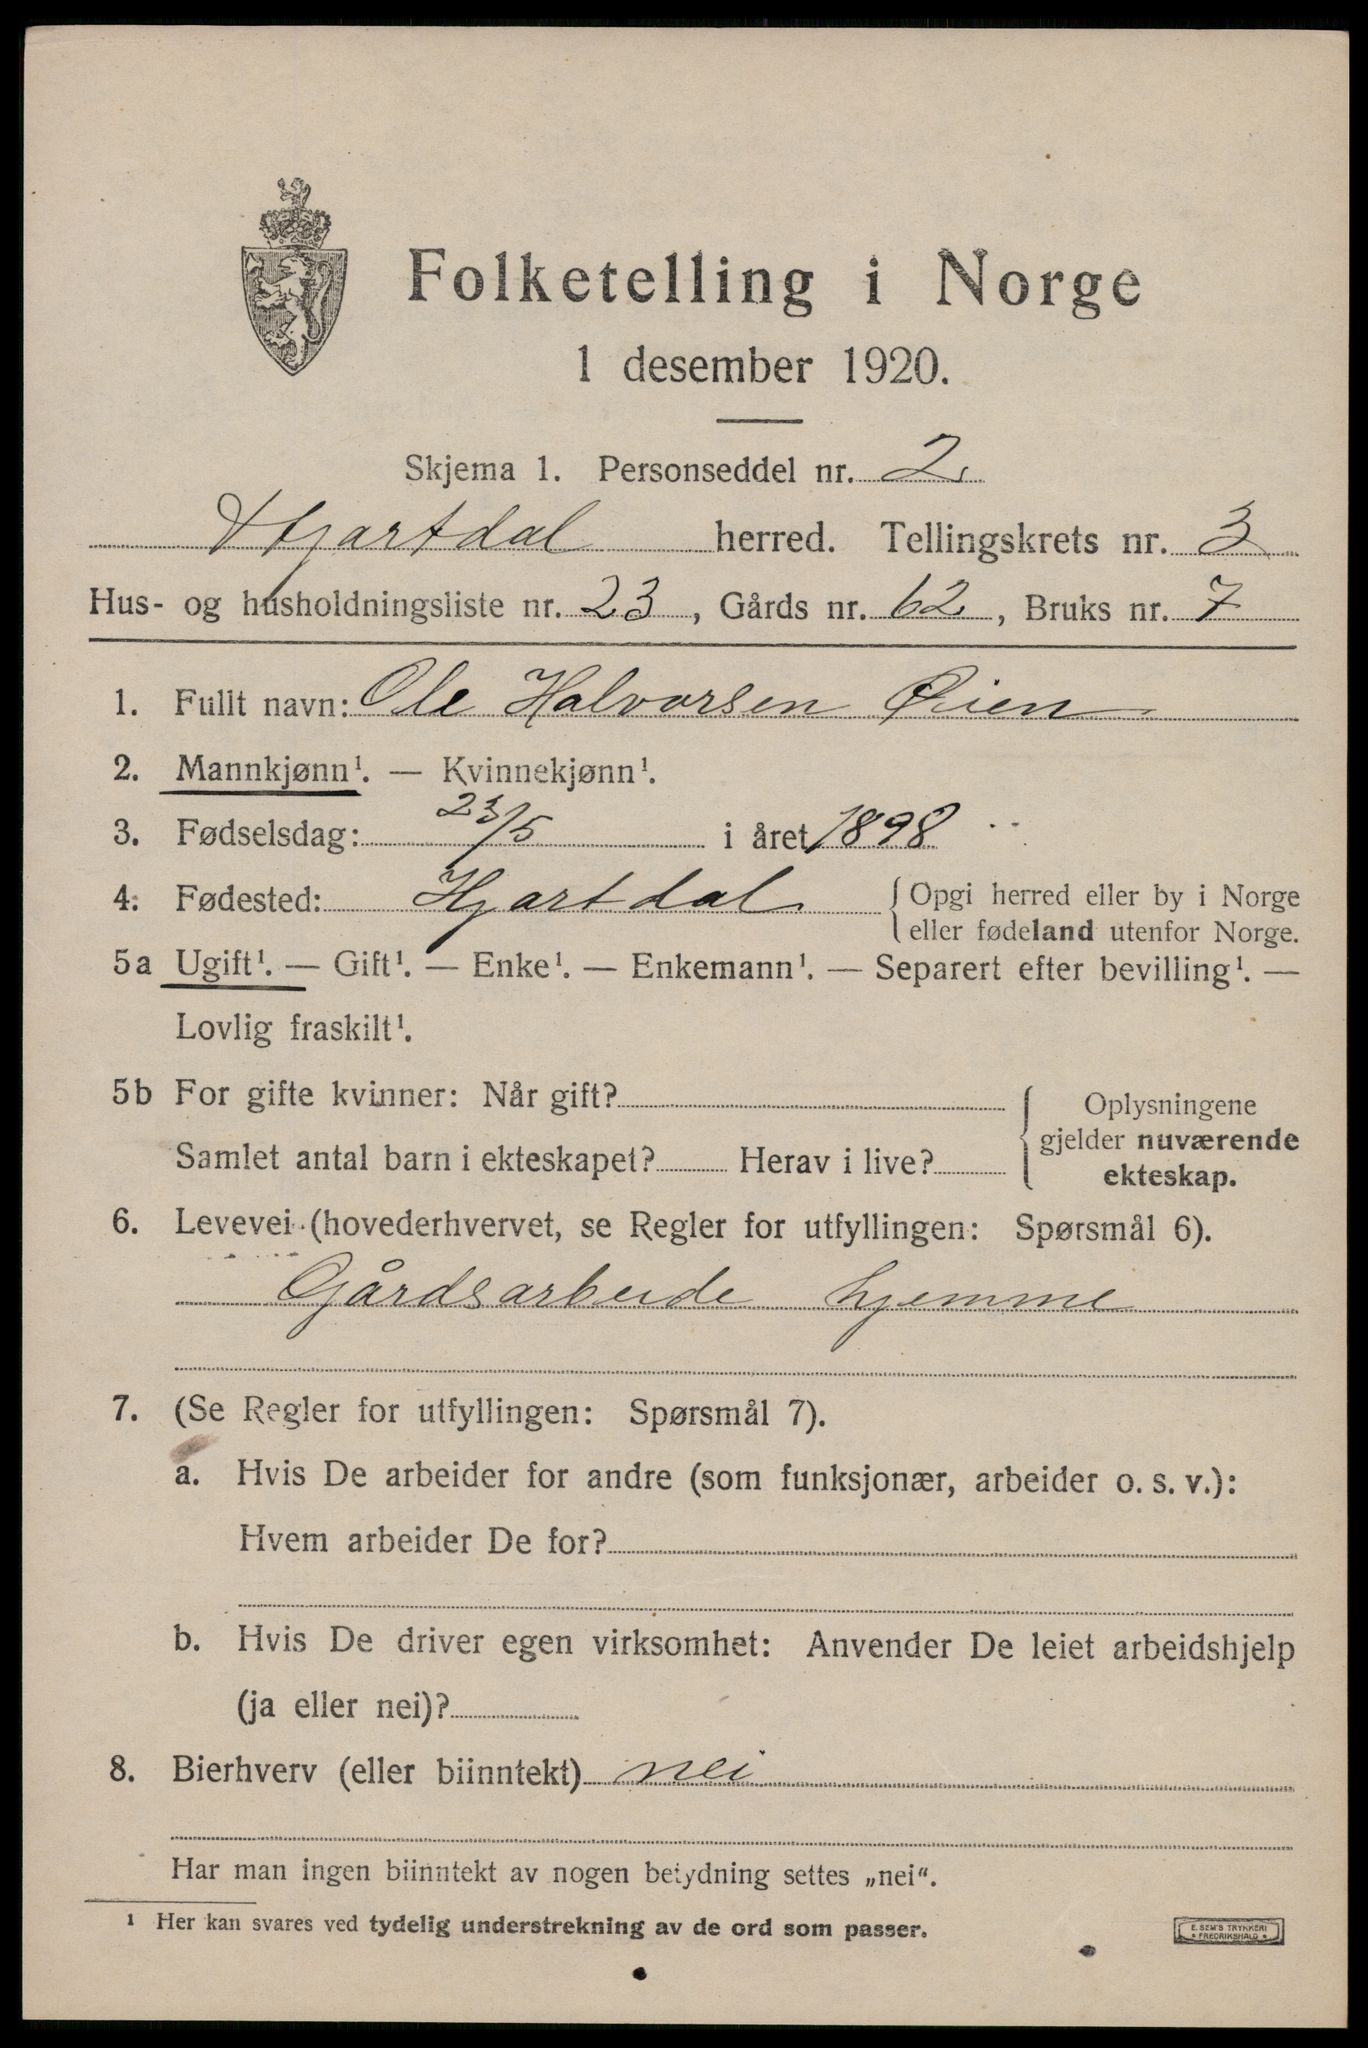 Folketelling i Norge
1 desember 1920.
Skjema 1. Personseddel nr. 2
Hjartdal herred. Tellingskrets nr. 3
Hus- og husholdningsliste nr. 23, Gårds nr. 62, Bruks nr. 7
1. Fullt navn: Ole Halvorsen Øien
2. Mannkjønn¹. — Kvinnekjønn¹.
3. Fødselsdag: 23/5 i året 1898
4. Fødested: Hjartdal { Opgi herred eller by i Norge
eller fødeland utenfor Norge.
5a Ugift¹. — Gift¹. — Enke¹. — Enkemann¹. — Separert efter bevilling¹. —
Lovlig fraskilt¹.
5b For gifte kvinner: Når gift?
Samlet antal barn i ekteskapet? Herav i live?
Oplysningene
gjelder nuværende
ekteskap.
6. Levevei (hovederhvervet, se Regler for utfyllingen: Spørsmål 6).
Gårdsarbeide hjemme
7. (Se Regler for utfyllingen: Spørsmål 7).
a. Hvis De arbeider for andre (som funksjonær, arbeider o. s. v.):
Hvem arbeider De for?
b. Hvis De driver egen virksomhet: Anvender De leiet arbeidshjelp
(ja eller nei)?
8. Bierhverv (eller biinntekt) nei
Har man ingen biinntekt av nogen betydning settes „nei“.
¹ Her kan svares ved tydelig understrekning av de ord som passer.
E. SEM'S TRYKKERI
• FREDRIKSHALD •